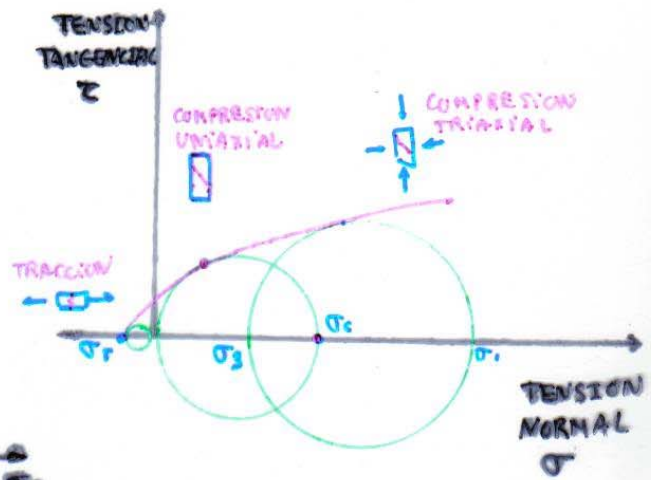 TENSION
TANGENCIAL
τ
COMPRESION
UNIAXIAL
COMPRESION
TRIAXIAL
TRACCION
σ3
σc
σ1
TENSION
NORMAL
σ